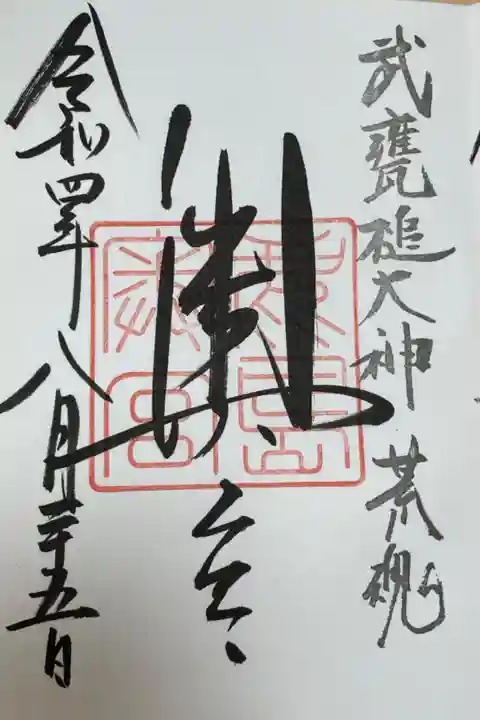 武甕槌大神 荒魂
奥宮
鹿島奥宮
令和四年八月二十五日